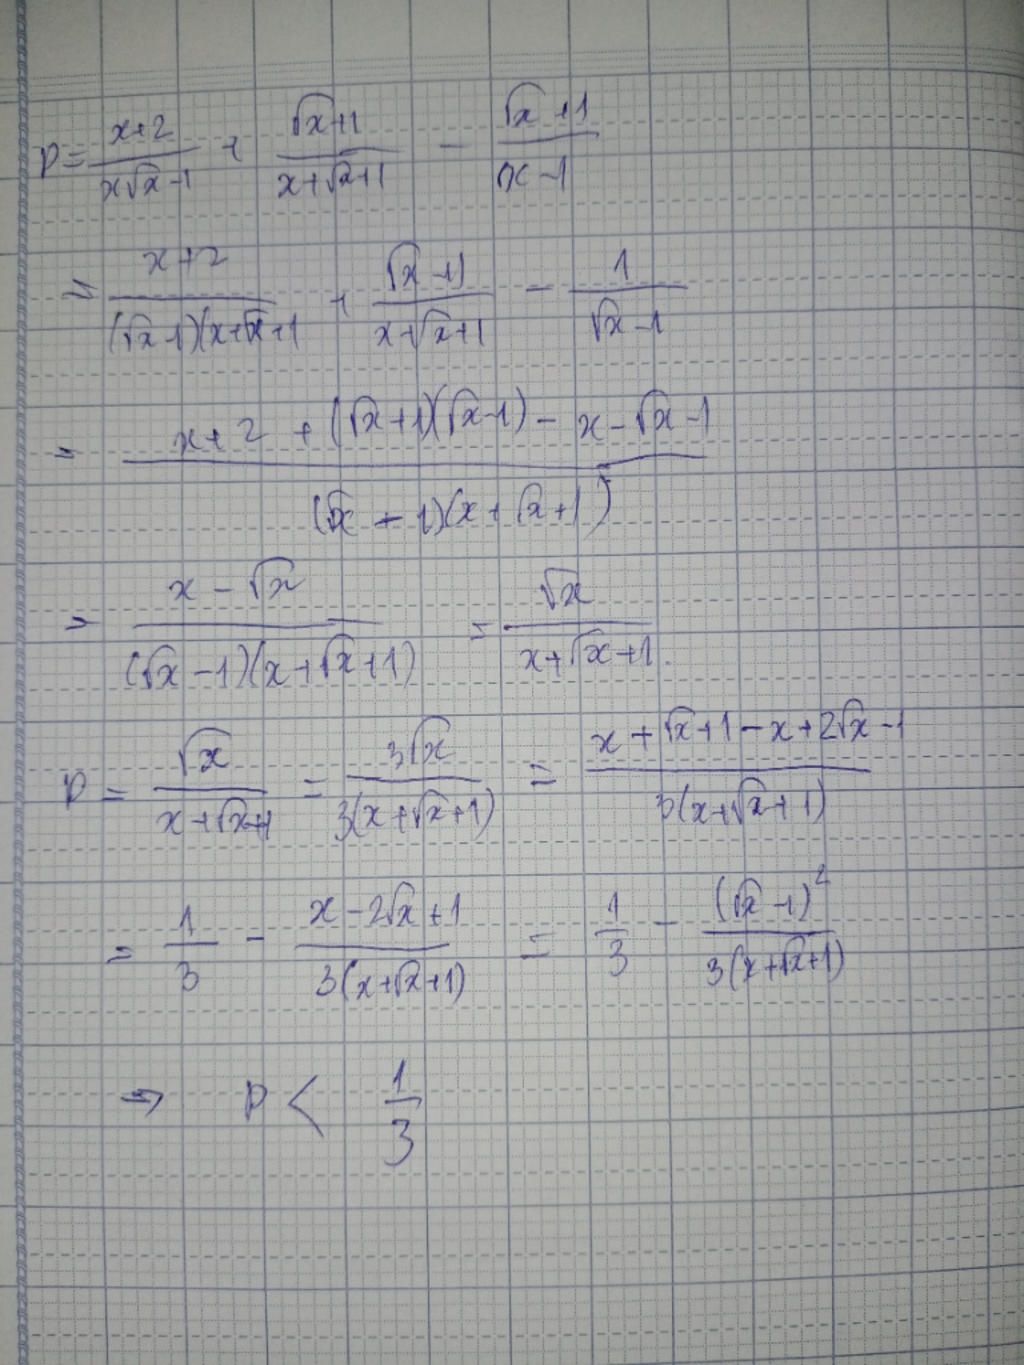 P = \frac{x+2}{x\sqrt{x}-1} + \frac{\sqrt{x}+1}{x+\sqrt{x}+1} - \frac{\sqrt{x}+1}{x-1}
= \frac{x+2}{(\sqrt{x}-1)(x+\sqrt{x}+1} + \frac{\sqrt{x}+1}{x+\sqrt{x}+1} - \frac{1}{\sqrt{x}-1}
= \frac{x+2+(\sqrt{x}+1)(\sqrt{x}-1)-x-\sqrt{x}-1}{(\sqrt{x}-1)(x+\sqrt{x}+1)}
= \frac{x-\sqrt{x}}{(\sqrt{x}-1)(x+\sqrt{x}+1)} = \frac{\sqrt{x}}{x+\sqrt{x}+1}.
P = \frac{\sqrt{x}}{x+\sqrt{x}+1} = \frac{3\sqrt{x}}{3(x+\sqrt{x}+1)} = \frac{x+\sqrt{x}+1-x+2\sqrt{x}-1}{3(x+\sqrt{x}+1)}
= \frac{1}{3} - \frac{x-2\sqrt{x}+1}{3(x+\sqrt{x}+1)} = \frac{1}{3} - \frac{(\sqrt{x}-1)^2}{3(x+\sqrt{x}+1)}
⇒ P < \frac{1}{3}